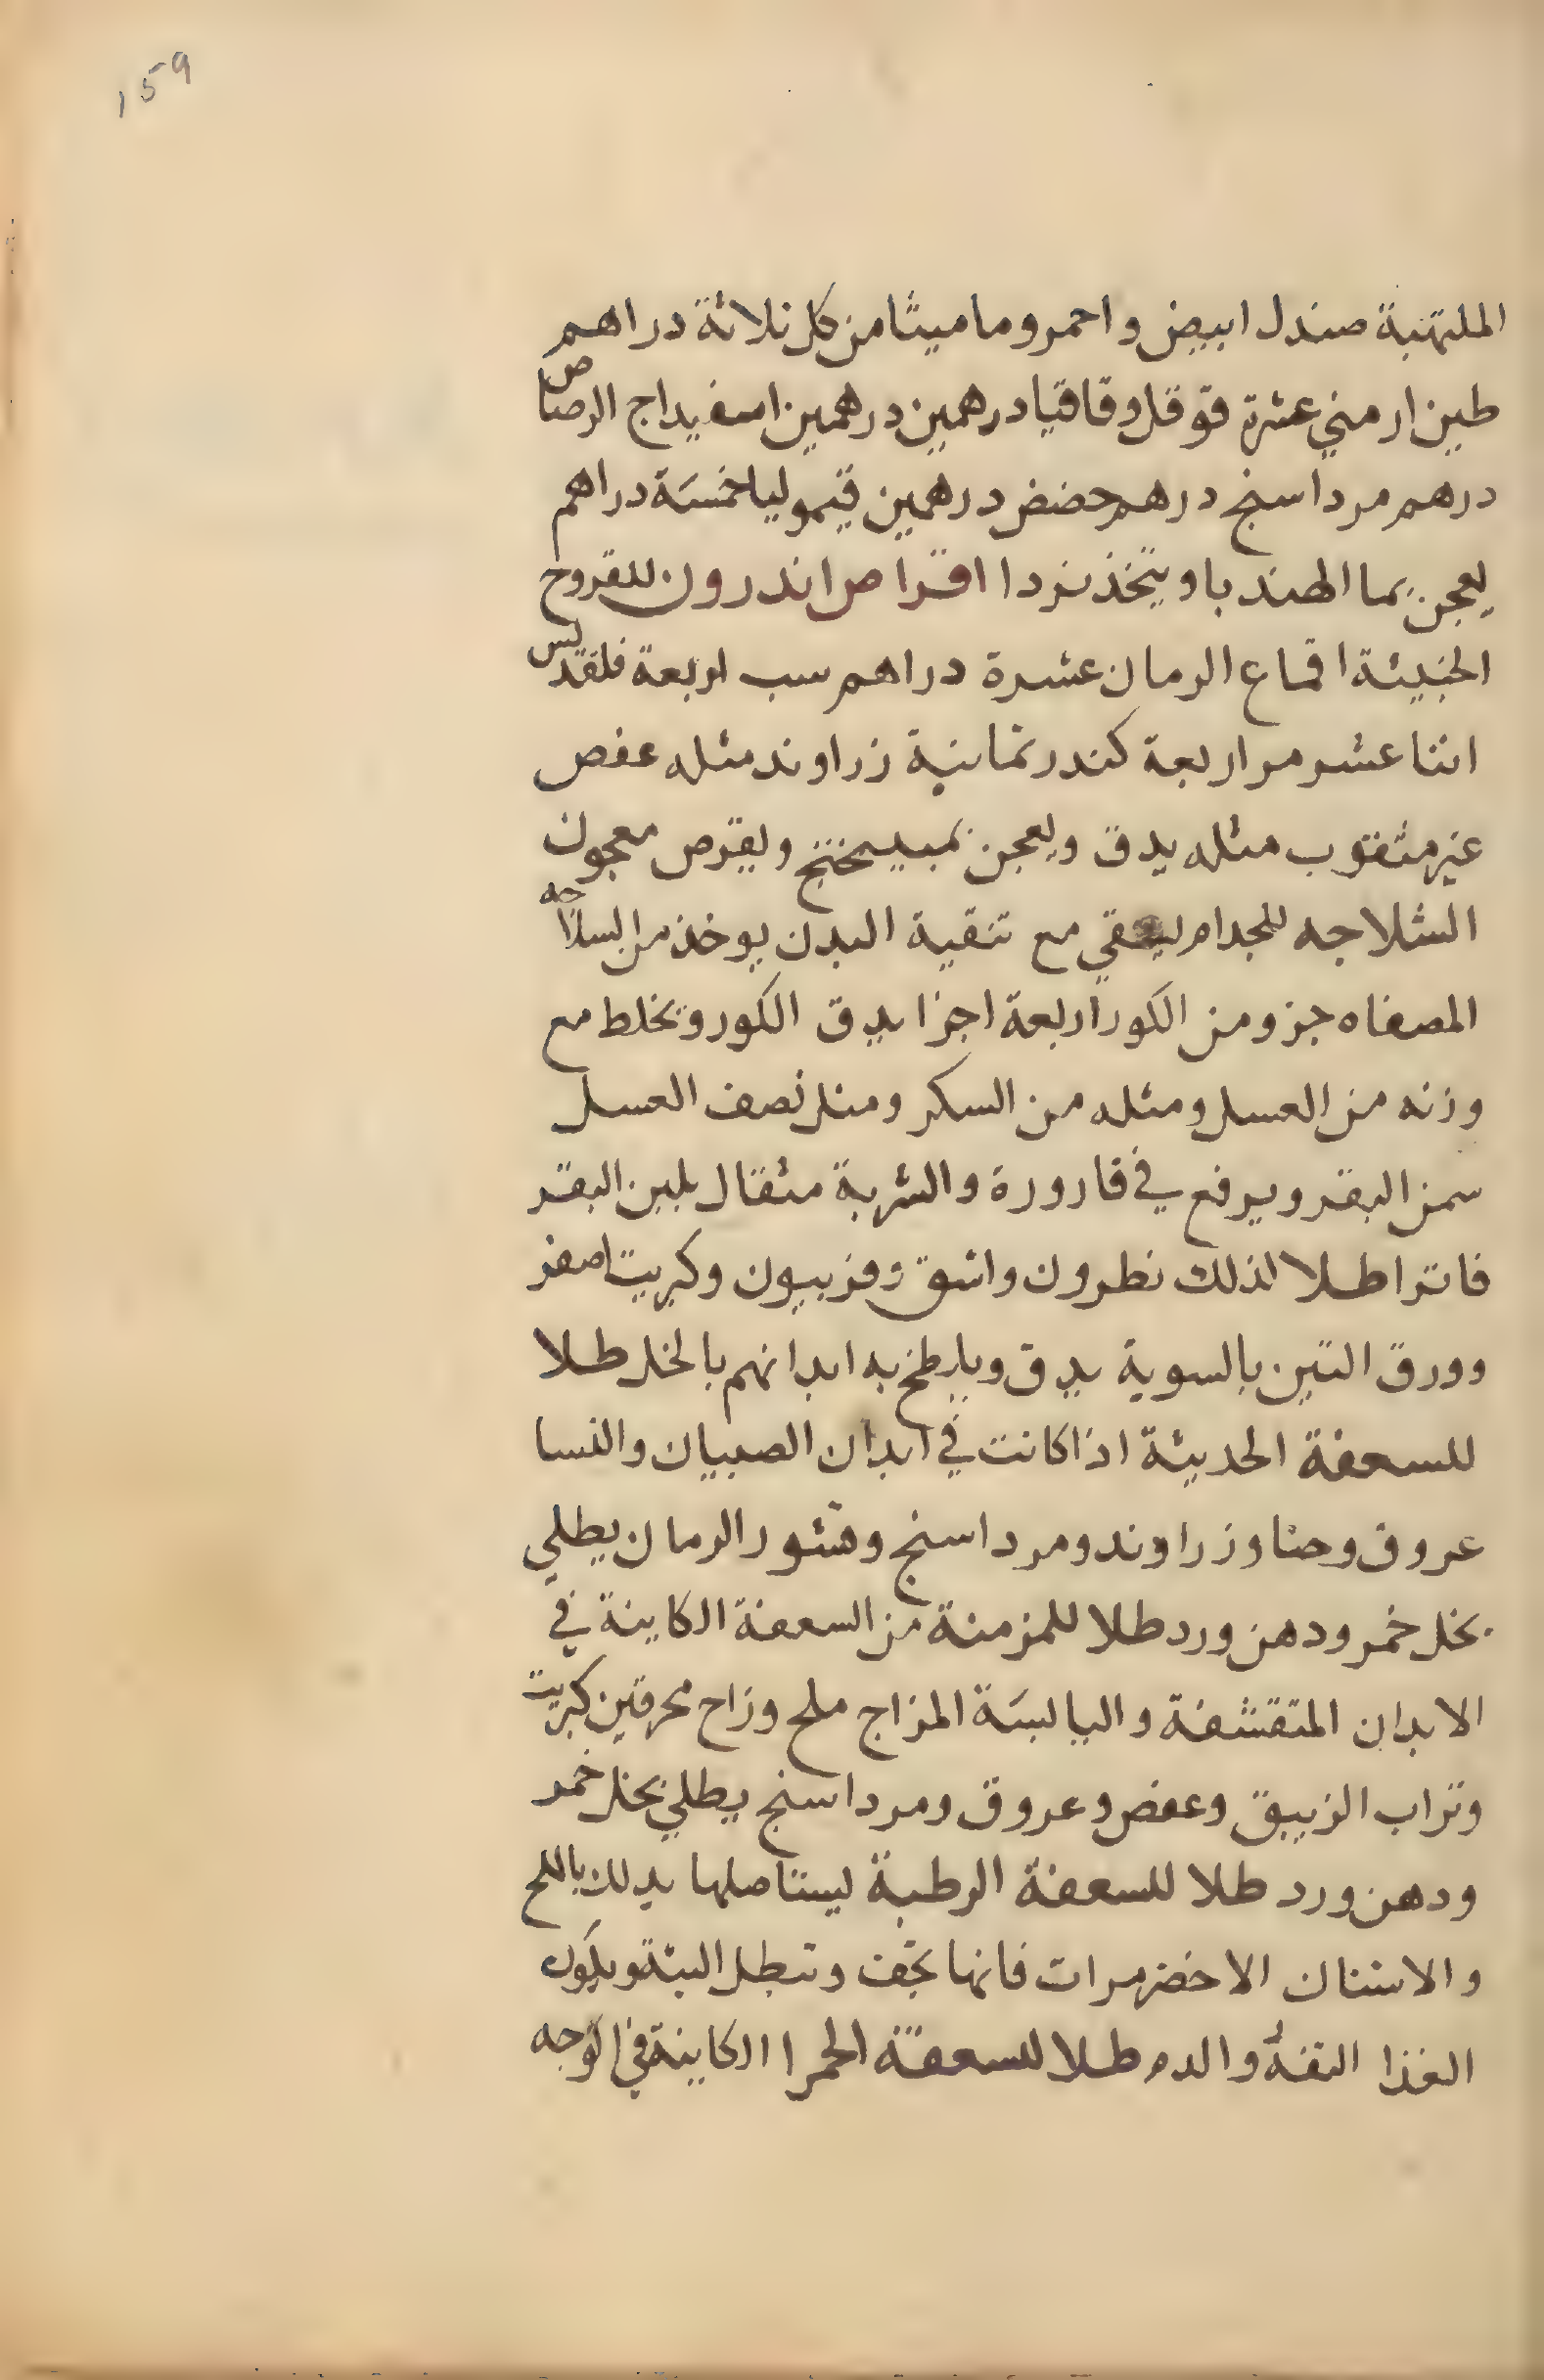 159
الملتهبة صندل ابيض واحمر وماميثا من كل ثلاثة دراهم
طين ارمني عشرة فوفل وقاقيا درهمين درهمين اسفيداج الرصاص
درهم مرداسنج درهم حضض درهمين قيموليا خمسة دراهم
يعجن بما الهندبا ويتخذ بزدا اقراص اندرون للقروح
الخبيثة اقماع الرمان عشرة دراهم سب اربعة قلقديس
اثنا عشر مر اربعة كندر ثمانية زراوند مثله عفص
غير مثقوب مثله يدق ويعجن بميبختج ويقرص معجون
الشلاجه للجدام يسقي مع تنقية البدن يوخذ من السلاجه
المصفاه جزو من الكور اربعة اجزا يدق الكور ويخلط مع
وزنه من العسل ومثله من السكر ومثل نصف العسل
سمن البقر ويرفع في قارورة والشربة مثقال بلبن البقر
فاترا طلا لذلك نطرون واشق وفربيون وكبريت اصفر
وورق التين بالسوية يدق ويلطخ به ابدانهم بالخل طلا
للسعفة الحديثة اذا كانت في ابدان الصبيان والنسا
عروق وحنا وزراوند ومرداسنج وقشور الرمان يطلي
بخل خمر ودهن ورد طلا للمزمنة من السعفة الكاينة في
الابدان المتقشفة واليابسة المزاج ملح وزاج محرقين كبريت
وتراب الزيبق وعفص وعروق ومرداسنج يطلي بخل خمر
ودهن ورد طلا للسعفة الرطبة ليستاصلها يدلك بالملح
والاشنان الاخضر مرات فانها تجف وتبطل البتة ويكون
الغذا التفه والدم طلا للسعفة الحمرا الكاينة في الوجه